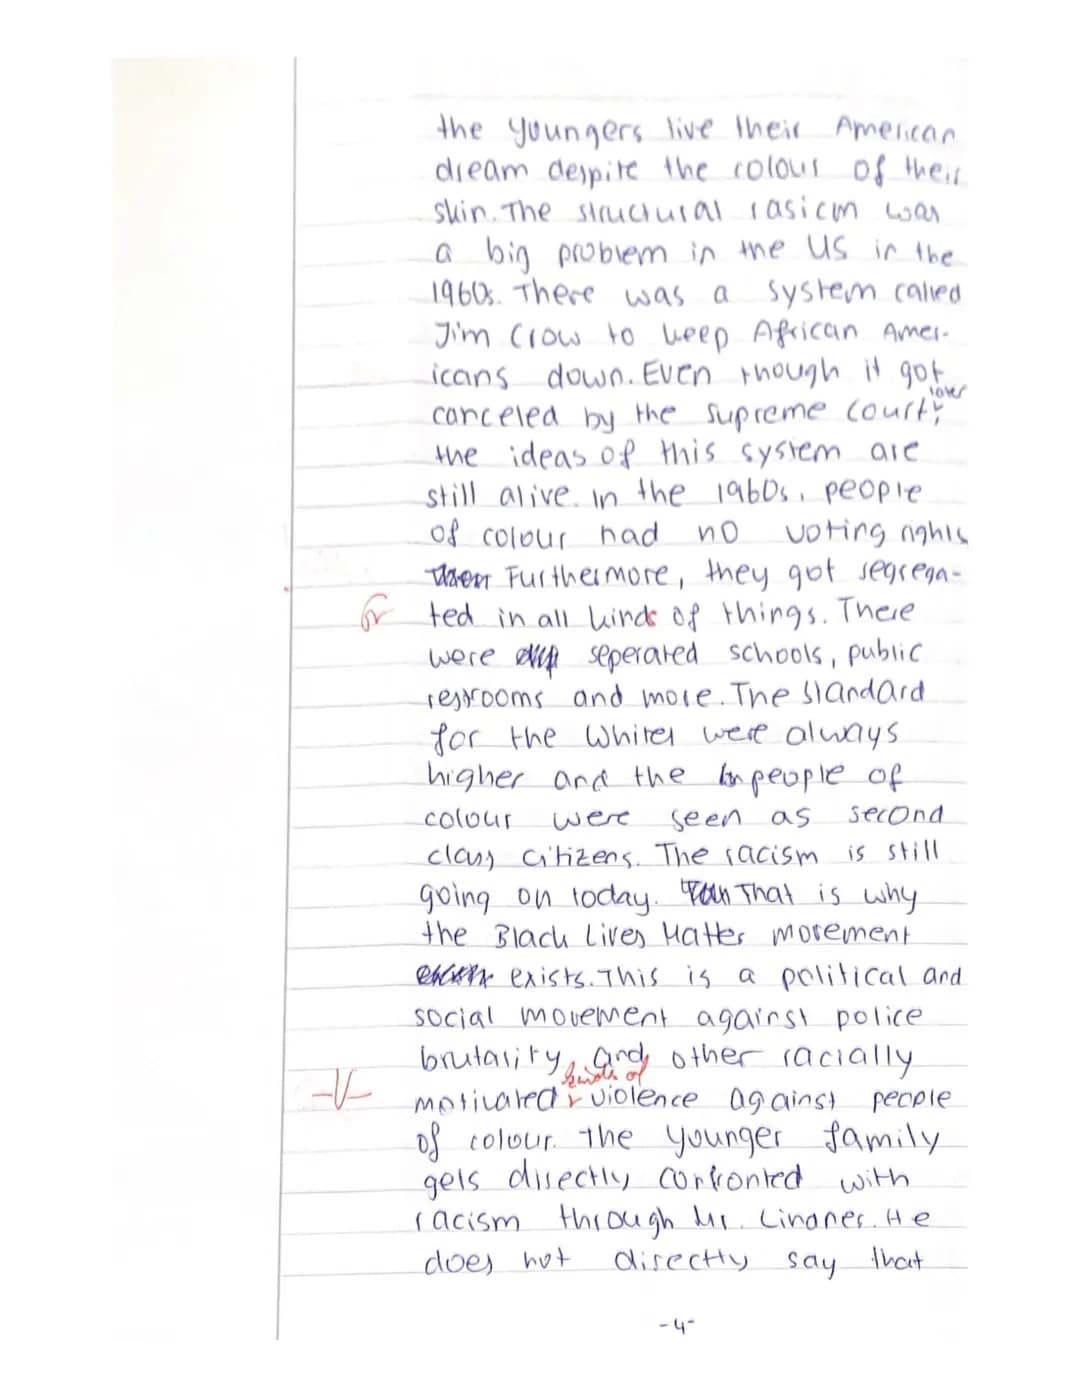 the youngers live their American
dream despite the colour of their
skin. The structural rasicm was
a big problem in the US in the
1960s. There was a system called
Jim Crow to keep African Amer-
icans down. Even though it got
later
canceled by the supreme court,
the ideas of this system are
still alive. in the 1960s, people
of colour had no voting rights
Furthermore, they got segrega-
Gr ted in all kinds of things. There
were seperated schools, public
restrooms and more. The standard
for the Whites were always
higher and the people of
colour were seen as second
class citizens. The racism is still
going on today. That is why
the Black Lives Matter movement
exists. This is a political and
social movement against police
brutality, and other racially
kinds of
-V- motivated violence against people
of colour. the younger family
gets directly confronted with
racism through Mr. Lindner. He
does not directly say that
-4-